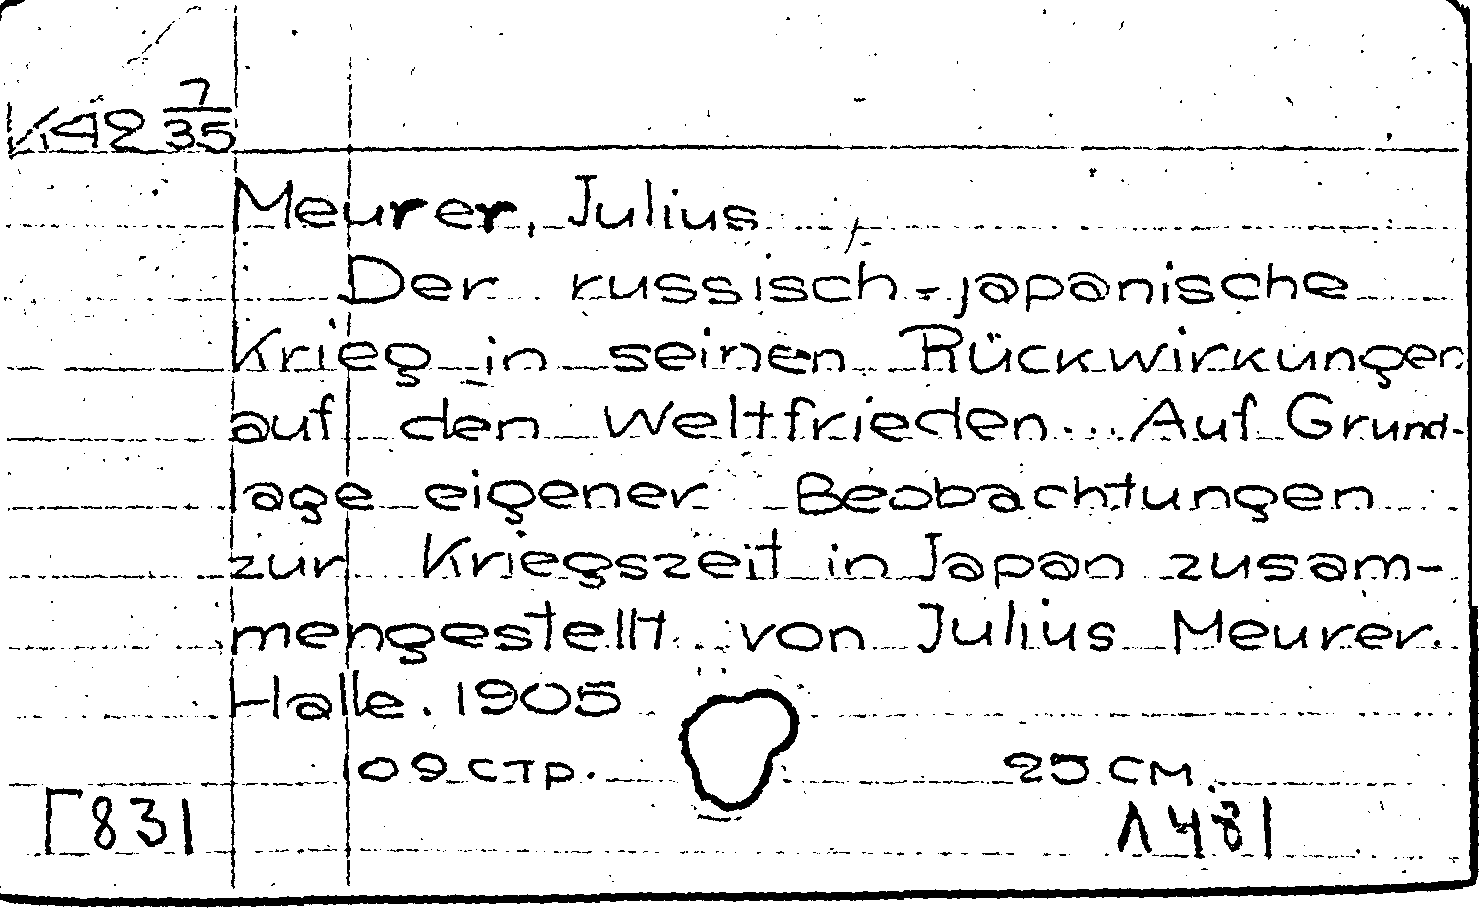 K42 7/35
Meurer, Julius
Der russisch-japanische
Krieg in seinen Rückwirkungen
auf den Weltfrieden... Auf Grund-
lage eigener Beobachtungen
zur Kriegszeit in Japan zusam-
mengestellt von Julius Meurer.
Halle. 1905
109 стр. 25 см.
Г831 Л481